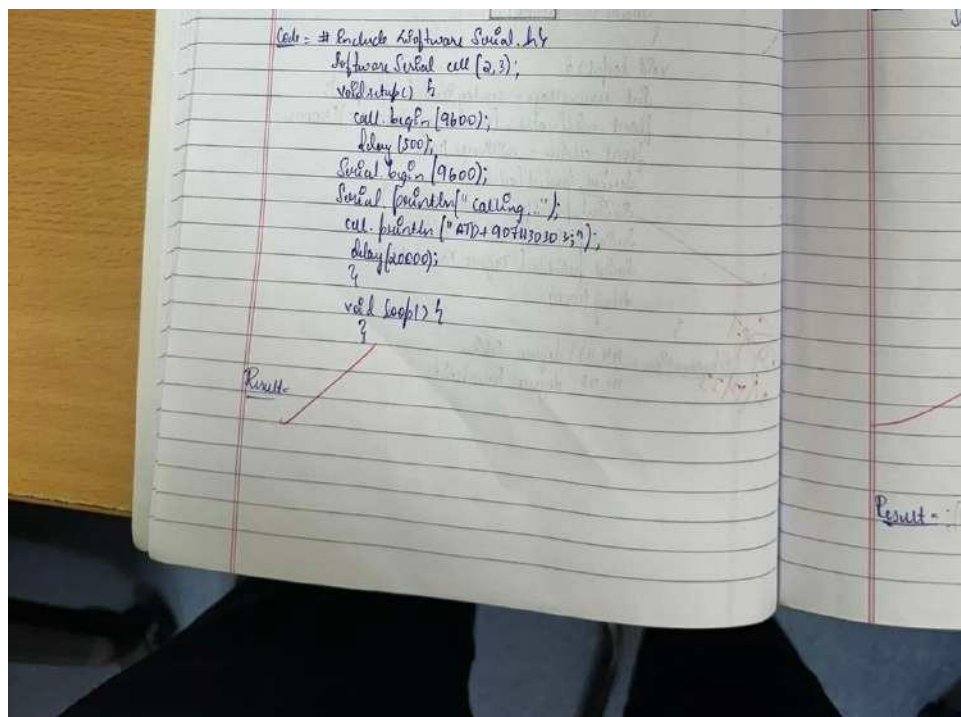 Code = # Include <Software Serial.h>
Software Serial cell (2,3);
void setup() {
cell.begin (9600);
delay (500);
Serial.begin (9600);
Serial.println(" calling...");
cell.println ("ATD+
delay(20000);
}
void loop() {
}
Result=
Result =